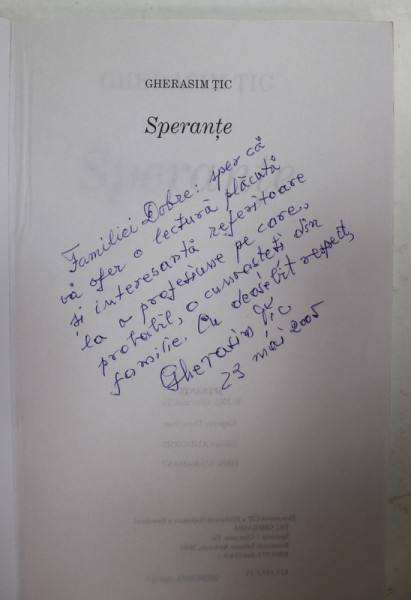 GHERASIM ȚIC
Speranțe
Familiei Dobre: sper că
vă ofer o lectură plăcută
și interesantă referitoare
la o profesiune pe care,
probabil, o cunoașteți din
familie. Cu deosebit respect,
Gherasim Țic
23 mai 2005